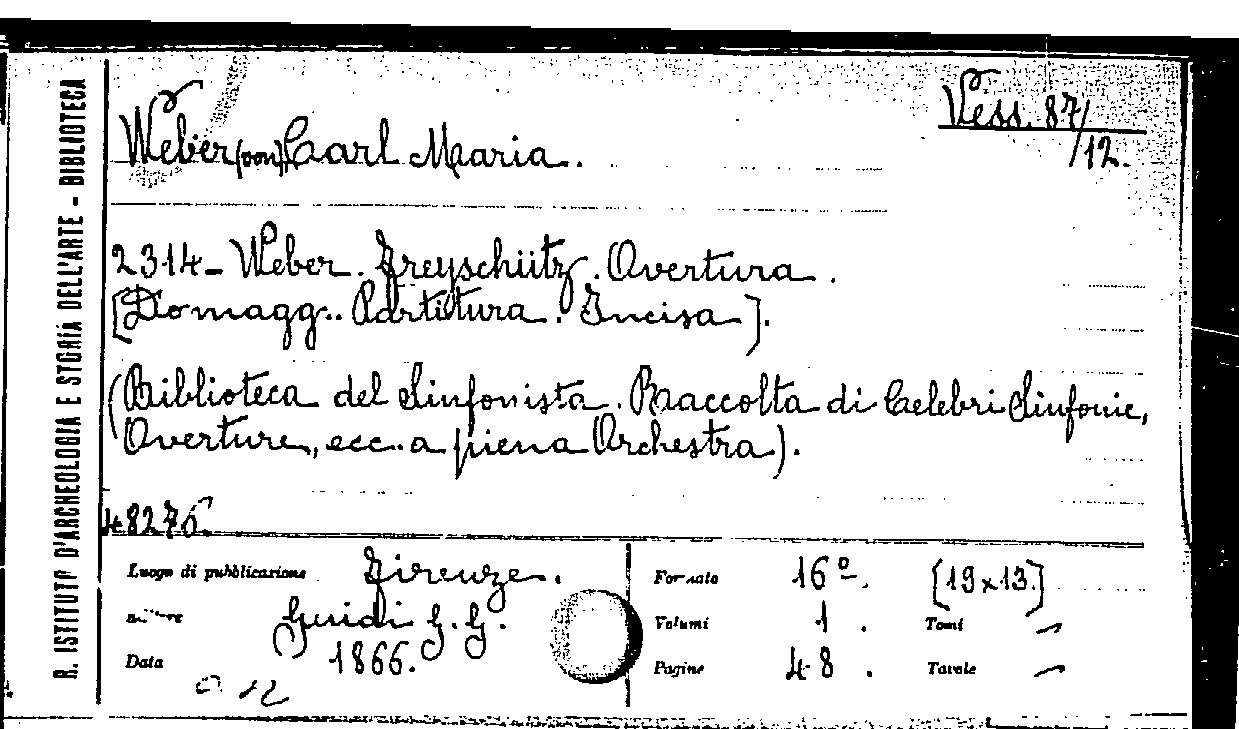 R. ISTITUTO D'ARCHEOLOGIA E STORIA DELL'ARTE - BIBLIOTECA
Vess. 87/12.
Weber (von) Carl Maria.
2314 - Weber. Freyschütz. Overtura.
[Domagg.. Partitura. Incisa].
(Biblioteca del Sinfonista. Raccolta di Celebri Sinfonie,
Overture, ecc. a piena Orchestra).
48276.
Luogo di pubblicazione Firenze.
Guidi G. G.
Data 1866.
Formato 16º. [19x13]
Volumi 1. Tomi —
Pagine 48. Tavole —